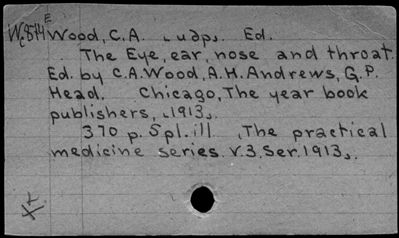 Wood, C.A. Ed.
The Eye, ear, nose and throat.
Ed. by C.A. Wood, A.H. Andrews, G.P.
Head. Chicago, The year book
publishers, 1913.
370 p. 5pl. ill. The practical
medicine series. V.3. Ser. 1913.